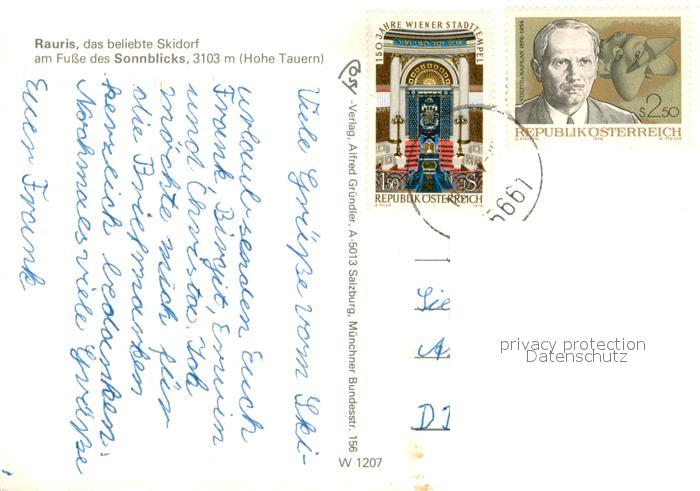 Rauris, das beliebte Skidorf
am Fuße des Sonnblicks, 3103 m (Hohe Tauern)
Viele Grüße vom Ski-
urlaub senden Euch
Frank, Birgit, Erwin
und Christa. Ich
möchte mich für
die Briefmarken
herzlich bedanken.
Nochmals viele Grüße
Euer Frank
-Verlag, Alfred Gründler, A-5013 Salzburg, Münchner Bundesstr. 156
W 1207
150 JAHRE WIENER STADTTEMPEL
1.50 S
REPUBLIK ÖSTERREICH
1976
KAPLAN 1876-1934
S 2.50
REPUBLIK ÖSTERREICH
1976
5661
privacy protection
Datenschutz